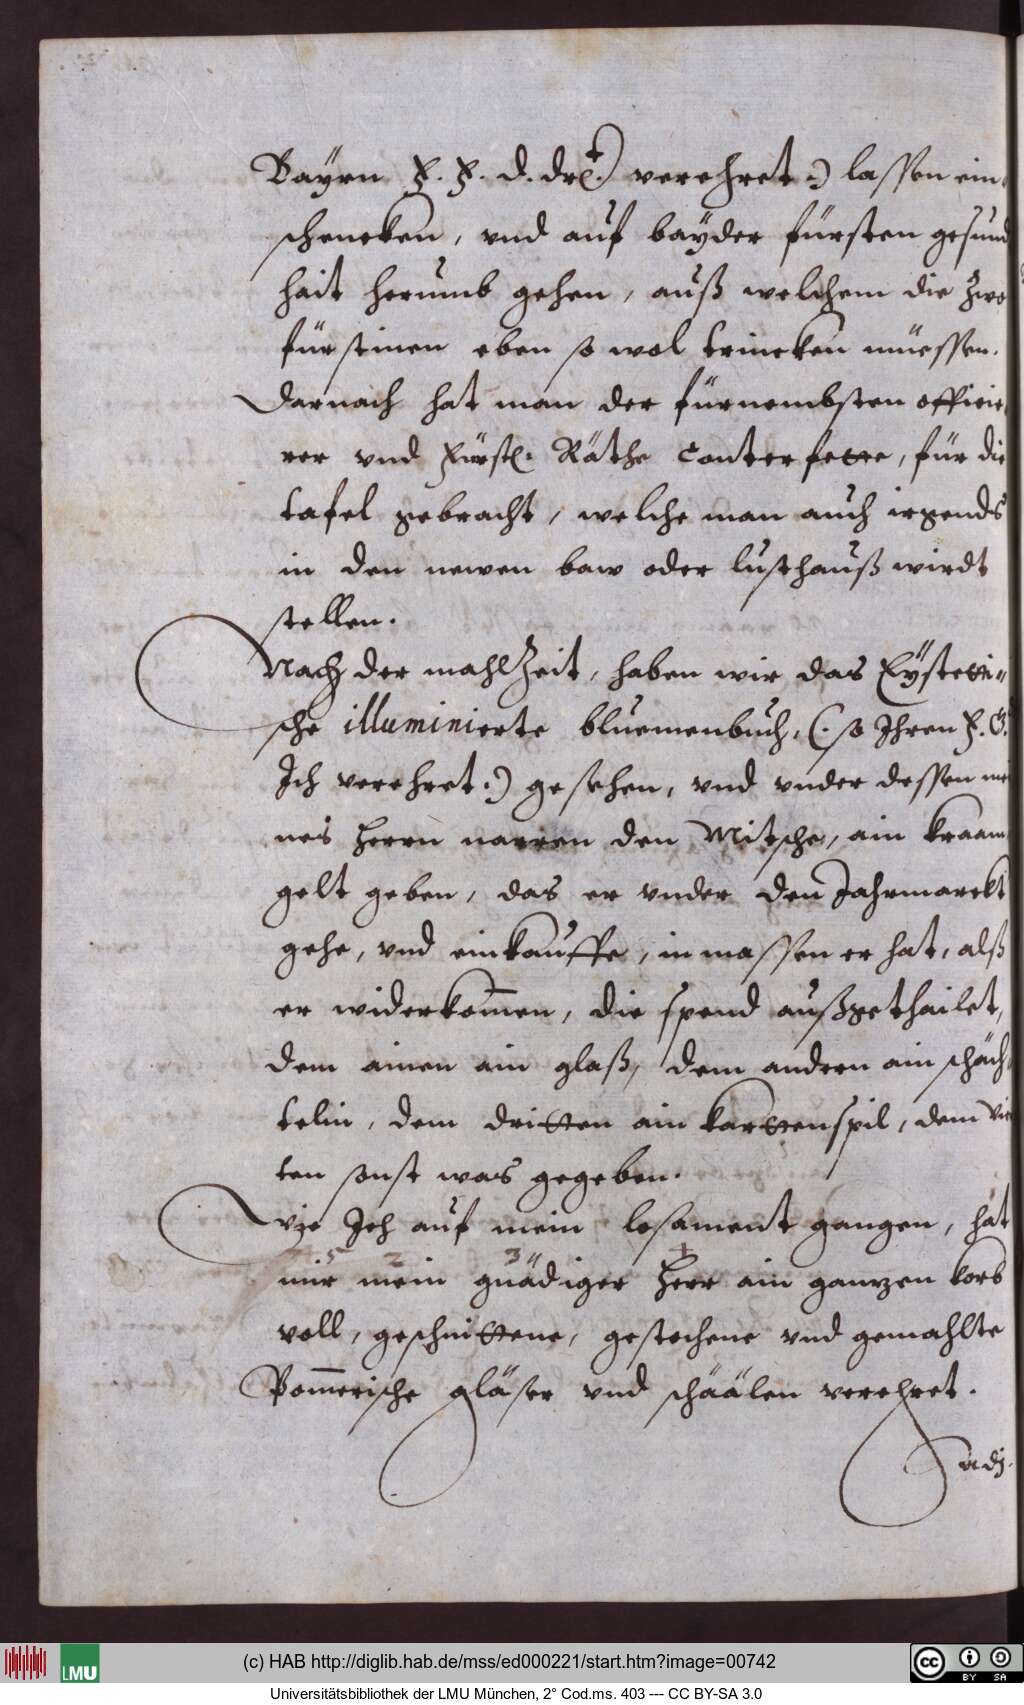 Bayrn F. F. D. Drt.) verehret.) lassen ein
schencken, vnd auf bayder fürsten gesund
hait herumb gehen, auß welchem die zwo
fürstinen eben so wol trincken müessen.
Darnach hat man der fürnembsten officie
rer vnd Fürstl. Räthe Conterfette, für die
tafel gebracht, welche man auch irgends
in den newen baw oder lusthauß wirdt
stellen.
Nach der mahlZeit, haben wir das Eystetti"
sche illuminierte bluemenbuch, (. so Ihren F. G.
Ich verehret.) gesehen, vnd vnder dessen mei
nes Herrn narren den Mitsche, ain kraam
gelt geben, das er vnder den Jahrmarckt
gehe, vnd einkauffe, inmassen er hat, alß
er widerkom̄en, die spend außgethailet,
dem ainen ain glaß, dem andern ain schäch
telin, dem dritten ain kartenspil, dem vier
ten sonst was gegeben.
Wie Ich auf mein losament gangen, hat
mir mein gnädiger Herr ain ganzen korb
voll, geschnittene, gestochene vnd gemahlte
Pom̄erische gläser vnd schäälen verehret.
Adj.
(c) HAB http://diglib.hab.de/mss/ed000221/start.htm?image=00742
LMU
cc BY SA
Universitätsbibliothek der LMU München, 2° Cod.ms. 403 --- CC BY-SA 3.0